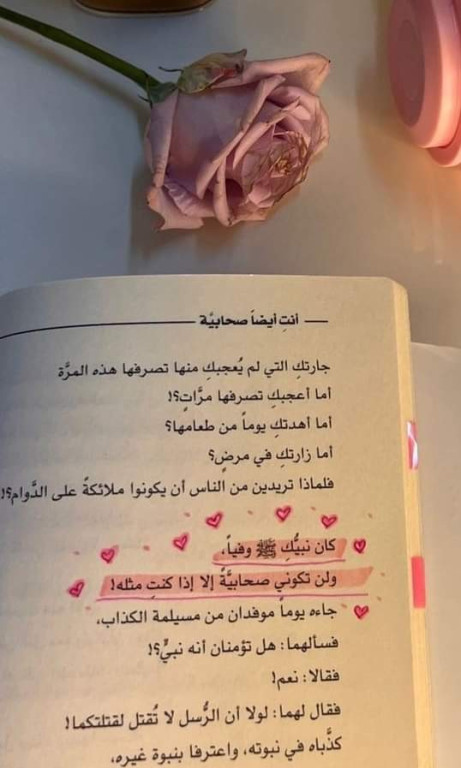 أنتِ أيضاً صحابيَّة
جارتكِ التي لم يُعجبكِ منها تصرفها هذه المرَّة
أما أعجبكِ تصرفها مرَّاتٍ؟!
أما أهدتكِ يوماً من طعامها؟
أما زارتكِ في مرضٍ؟
فلماذا تريدين من الناس أن يكونوا ملائكةً على الدَّوام؟!
كان نبيُّكِ ﷺ وفياً،
ولن تكوني صحابيَّةً إلا إذا كنتِ مثله!
جاءه يوماً موفدان من مسيلمة الكذاب،
فسألهما: هل تؤمنان أنه نبيٌّ؟!
فقالا: نعم!
فقال لهما: لولا أن الرُّسل لا تُقتل لقتلتكما!
كذَّباه في نبوته، واعترفا بنبوة غيره،